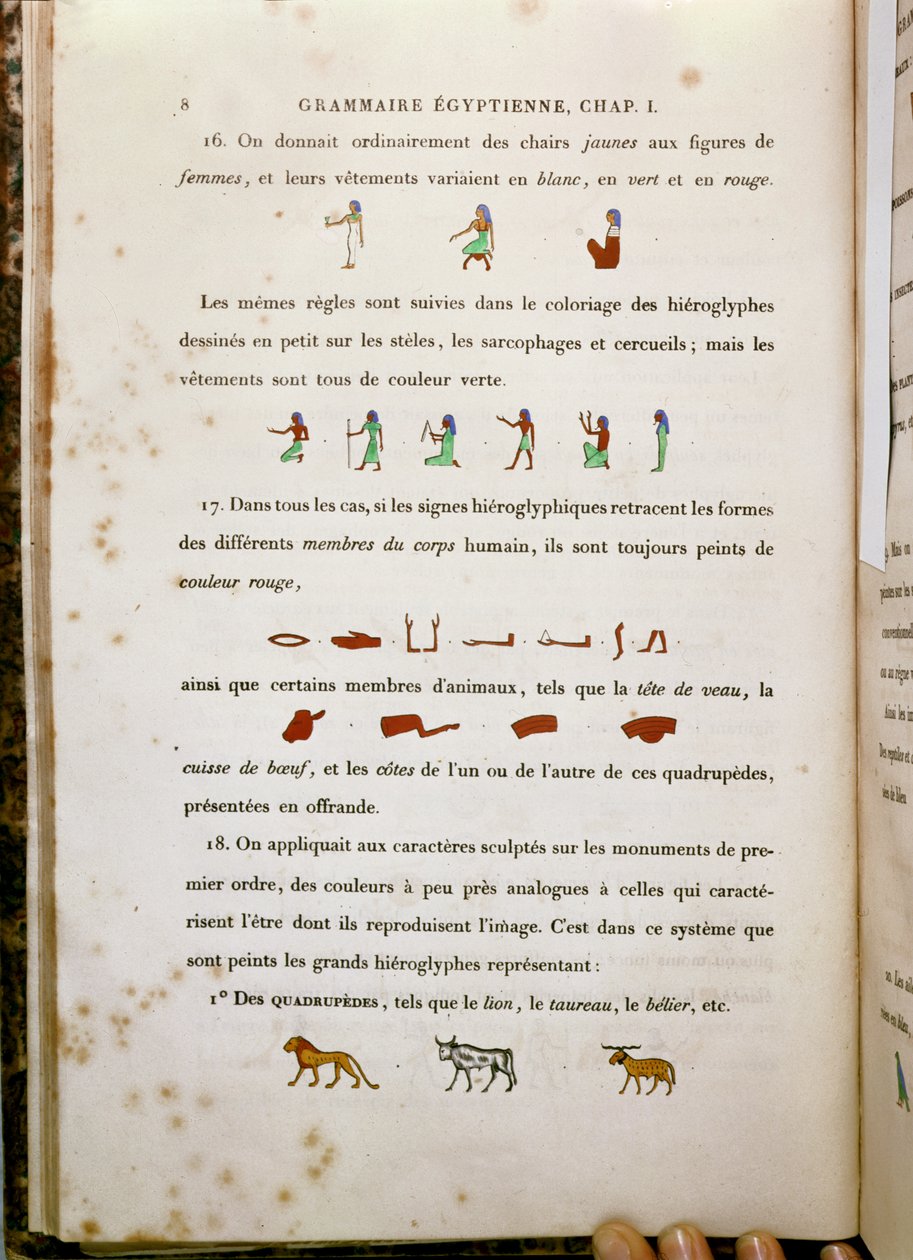 8 GRAMMAIRE ÉGYPTIENNE, CHAP. I.
16. On donnait ordinairement des chairs jaunes aux figures de
femmes, et leurs vêtements variaient en blanc, en vert et en rouge.
Les mêmes règles sont suivies dans le coloriage des hiéroglyphes
dessinés en petit sur les stèles, les sarcophages et cercueils; mais les
vêtements sont tous de couleur verte.
17. Dans tous les cas, si les signes hiéroglyphiques retracent les formes
des différents membres du corps humain, ils sont toujours peints de
couleur rouge,
ainsi que certains membres d'animaux, tels que la tête de veau, la
cuisse de bœuf, et les côtes de l'un ou de l'autre de ces quadrupèdes,
présentées en offrande.
18. On appliquait aux caractères sculptés sur les monuments de pre-
mier ordre, des couleurs à peu près analogues à celles qui caracté-
risent l'être dont ils reproduisent l'image. C'est dans ce système que
sont peints les grands hiéroglyphes représentant :
1° Des QUADRUPÈDES, tels que le lion, le taureau, le bélier, etc.
Mais on
peintes sur les
ou au règne
Ainsi les
Des reptiles et